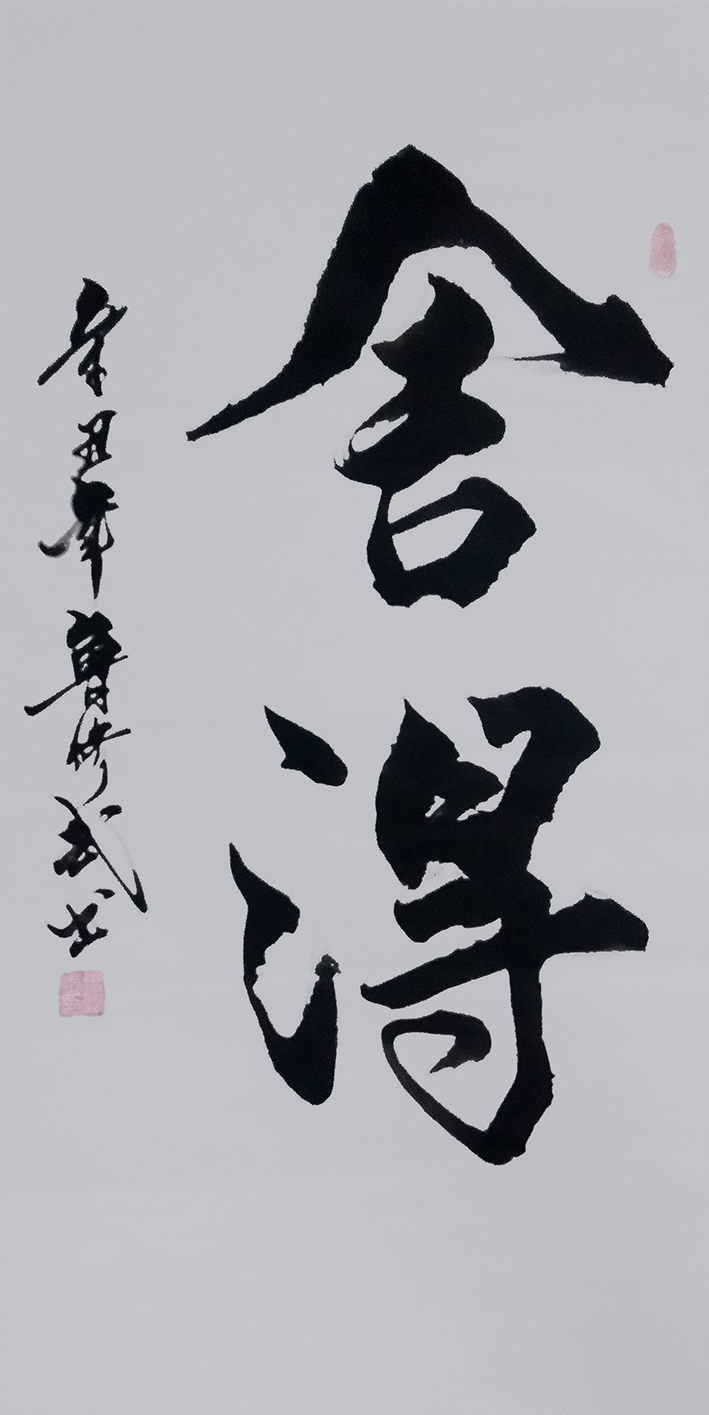 舍得
辛丑年曹修武书